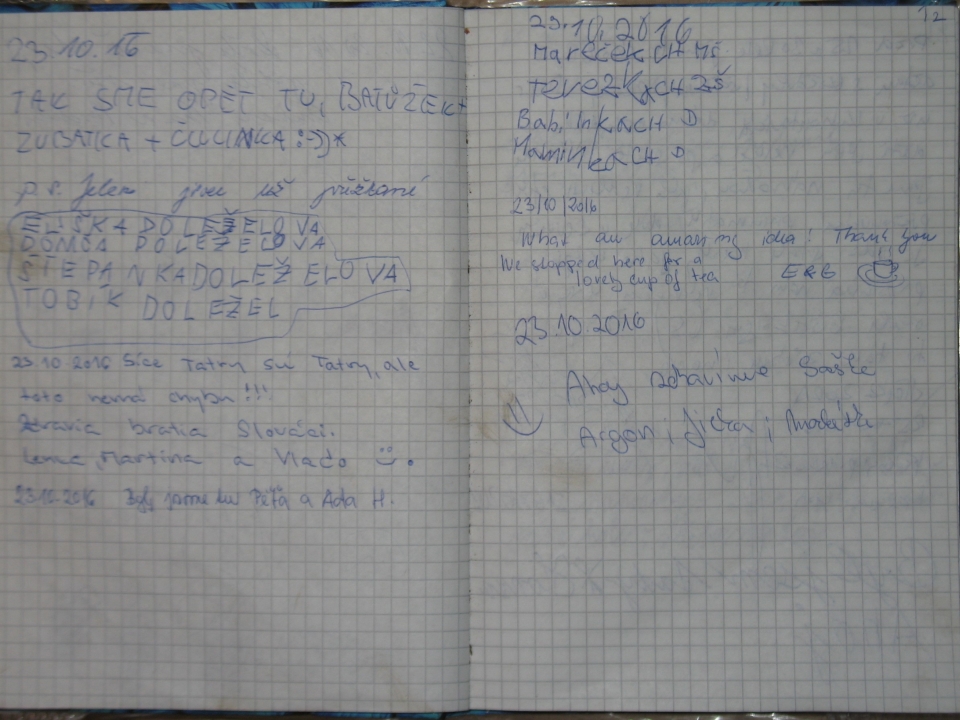 23.10.16
TAK SME OPĚT TU, BATŮŽEK +
ZUBATKA + ČUČINKA :-))*
p.s. jsme
ELIŠKA DOLEŽELOVA
DOMČA DOLEŽELOVA
ŠTĚPÁNKA DOLEŽELOVA
TOBIK DOLEŽEL
23.10.2016 Síce Tatry sú Tatry, ale
toto nemá chybu!!!
Zdravia bratia Slováci.
Lenka, Martina a Vlado
23.10.2016 Byly jsme tu Péťa a Ada H.
12
23.10.2016
Mareček CH MŠ
Terezka CH ZŠ
Babinka CH D
Maminka CH D
23/10/2016
What an amazing idea! Thank you
We stopped here for a
lovely cup of tea E&B
23.10.2016
Ahoj zdravíme
Argon, Jitka,